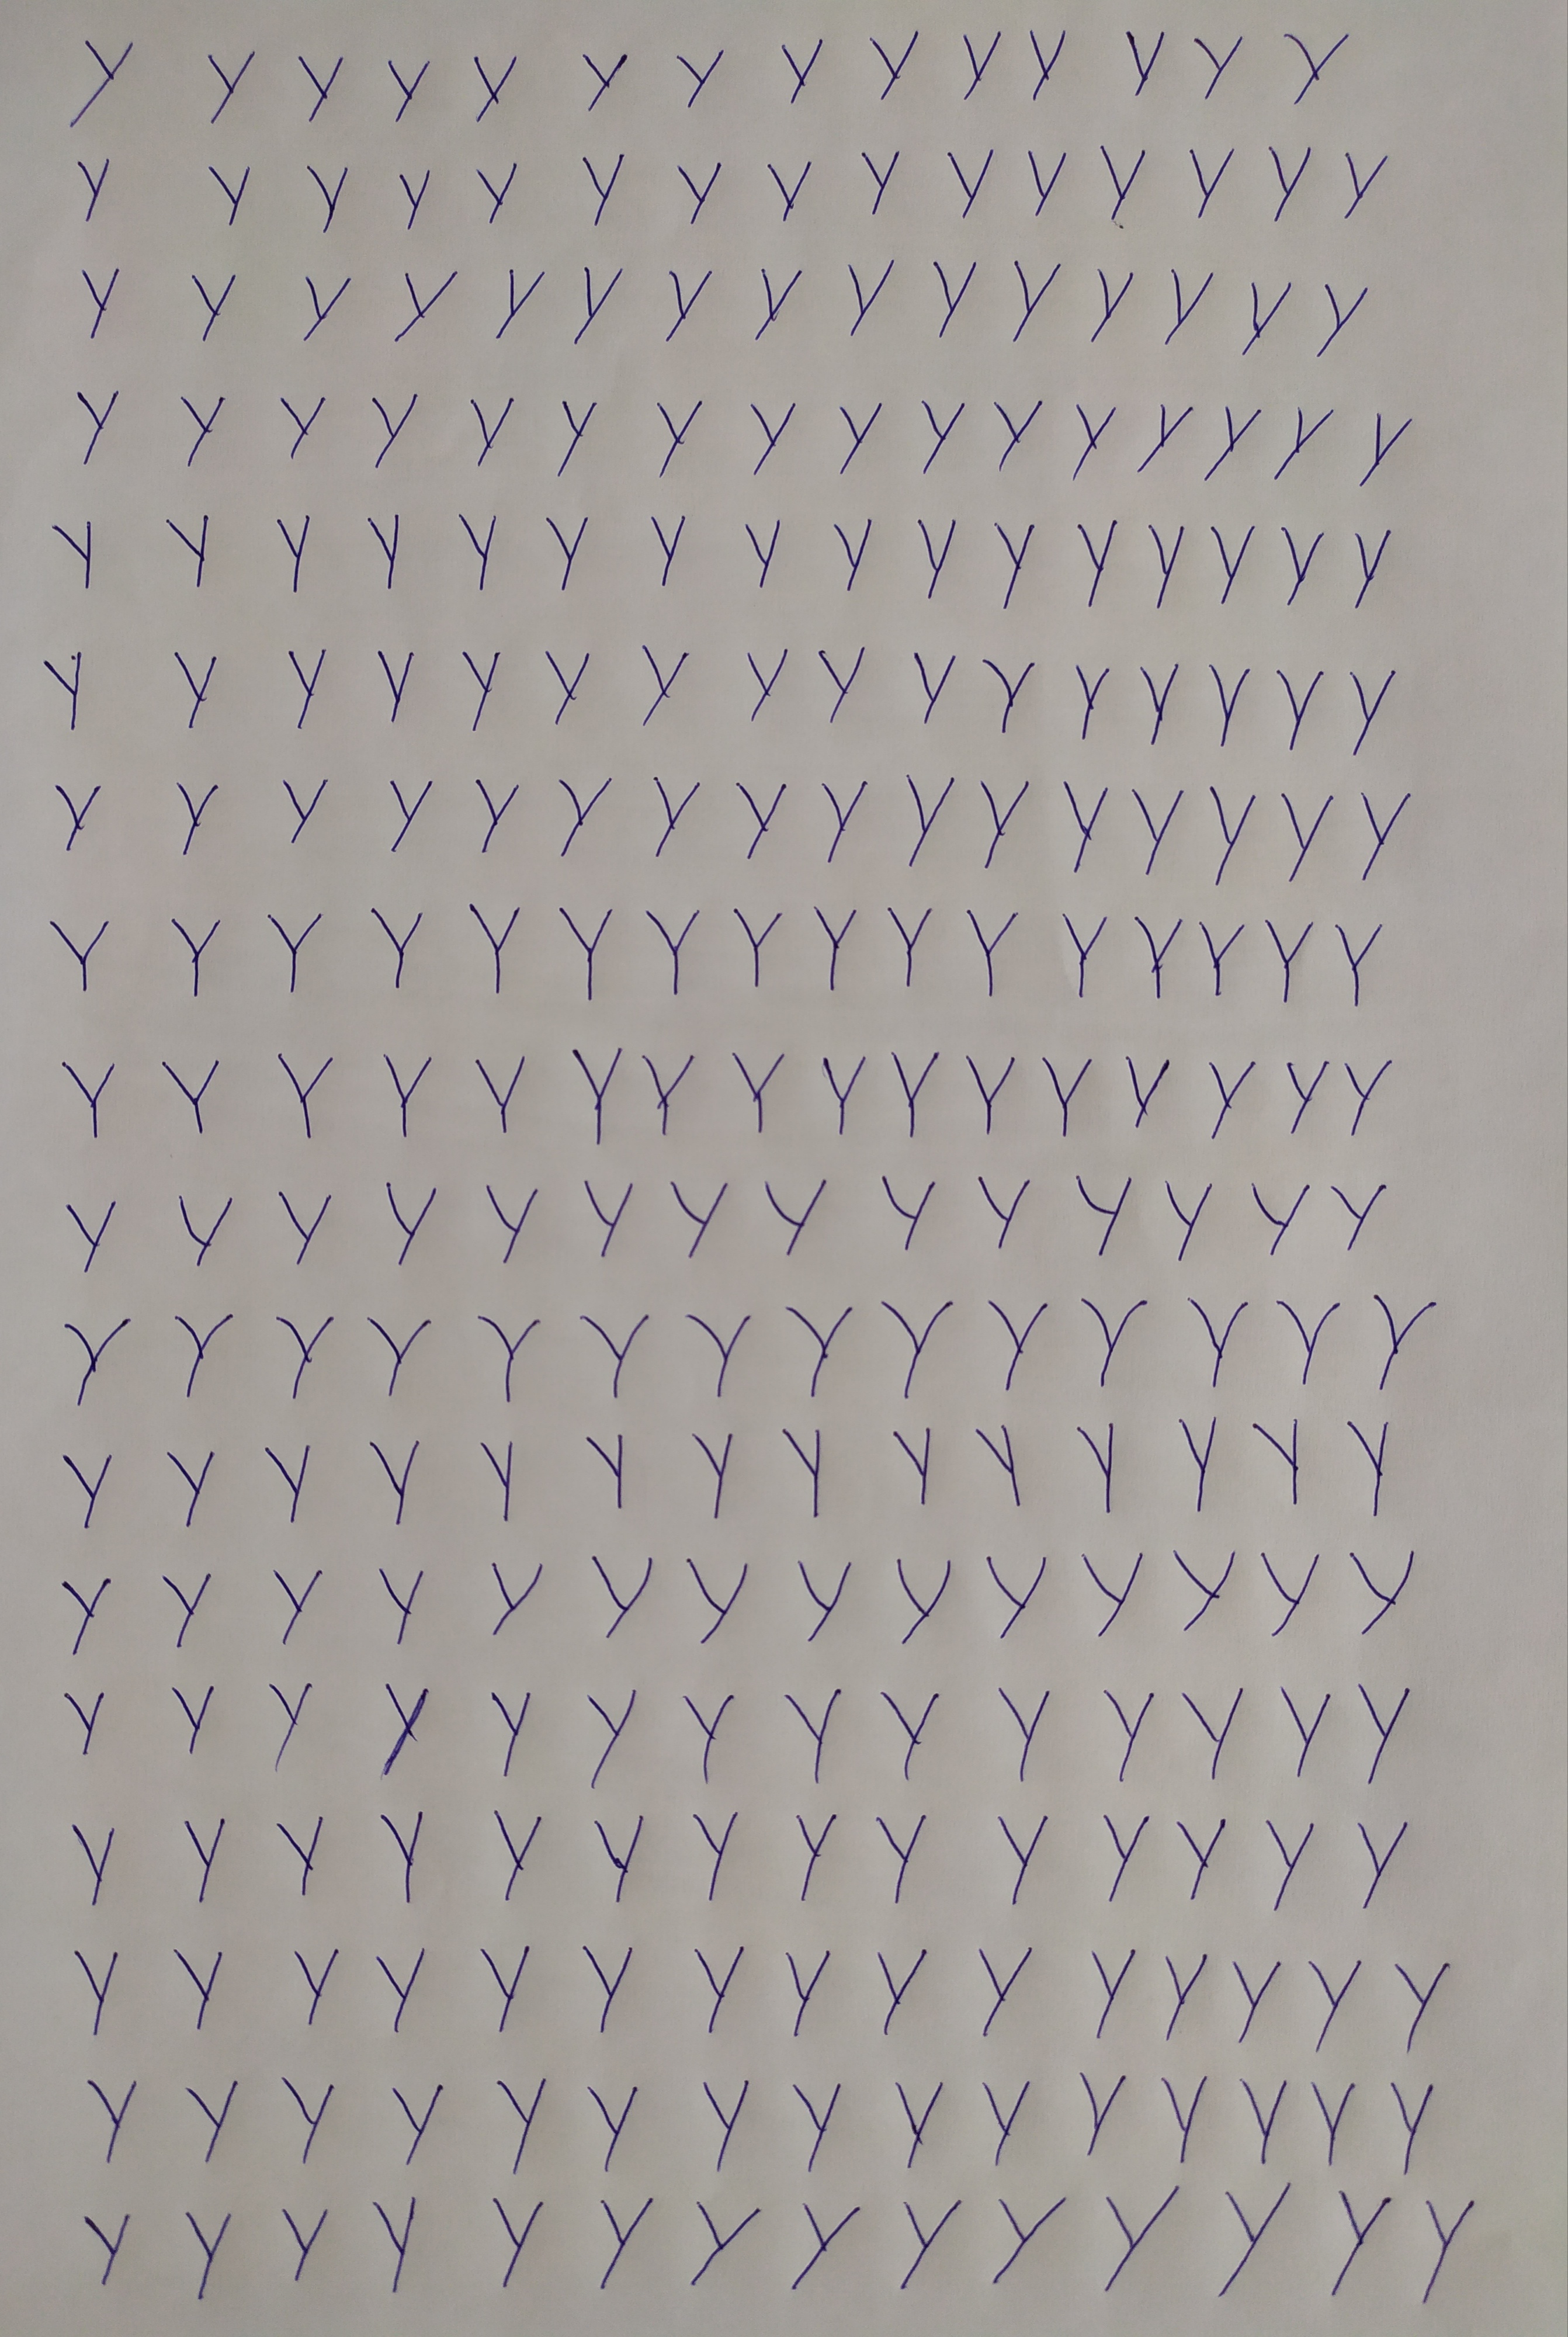 Y Y Y Y Y Y Y Y Y Y Y Y Y Y
Y Y Y Y Y Y Y Y Y Y Y Y Y Y Y
Y Y Y Y Y Y Y Y Y Y Y Y Y Y Y
Y Y Y Y Y Y Y Y Y Y Y Y Y Y Y Y
Y Y Y Y Y Y Y Y Y Y Y Y Y Y Y Y
Y Y Y Y Y Y Y Y Y Y Y Y Y Y Y Y
Y Y Y Y Y Y Y Y Y Y Y Y Y Y Y Y
Y Y Y Y Y Y Y Y Y Y Y Y Y Y Y Y
Y Y Y Y Y Y Y Y Y Y Y Y Y Y Y Y
Y Y Y Y Y Y Y Y Y Y Y Y Y Y
Y Y Y Y Y Y Y Y Y Y Y Y Y Y
Y Y Y Y Y Y Y Y Y Y Y Y Y Y
Y Y Y Y Y Y Y Y Y Y Y Y Y Y
Y Y Y Y Y Y Y Y Y Y Y Y Y Y
Y Y Y Y Y Y Y Y Y Y Y Y Y Y
Y Y Y Y Y Y Y Y Y Y Y Y Y Y Y
Y Y Y Y Y Y Y Y Y Y Y Y Y Y Y
Y Y Y Y Y Y Y Y Y Y Y Y Y Y